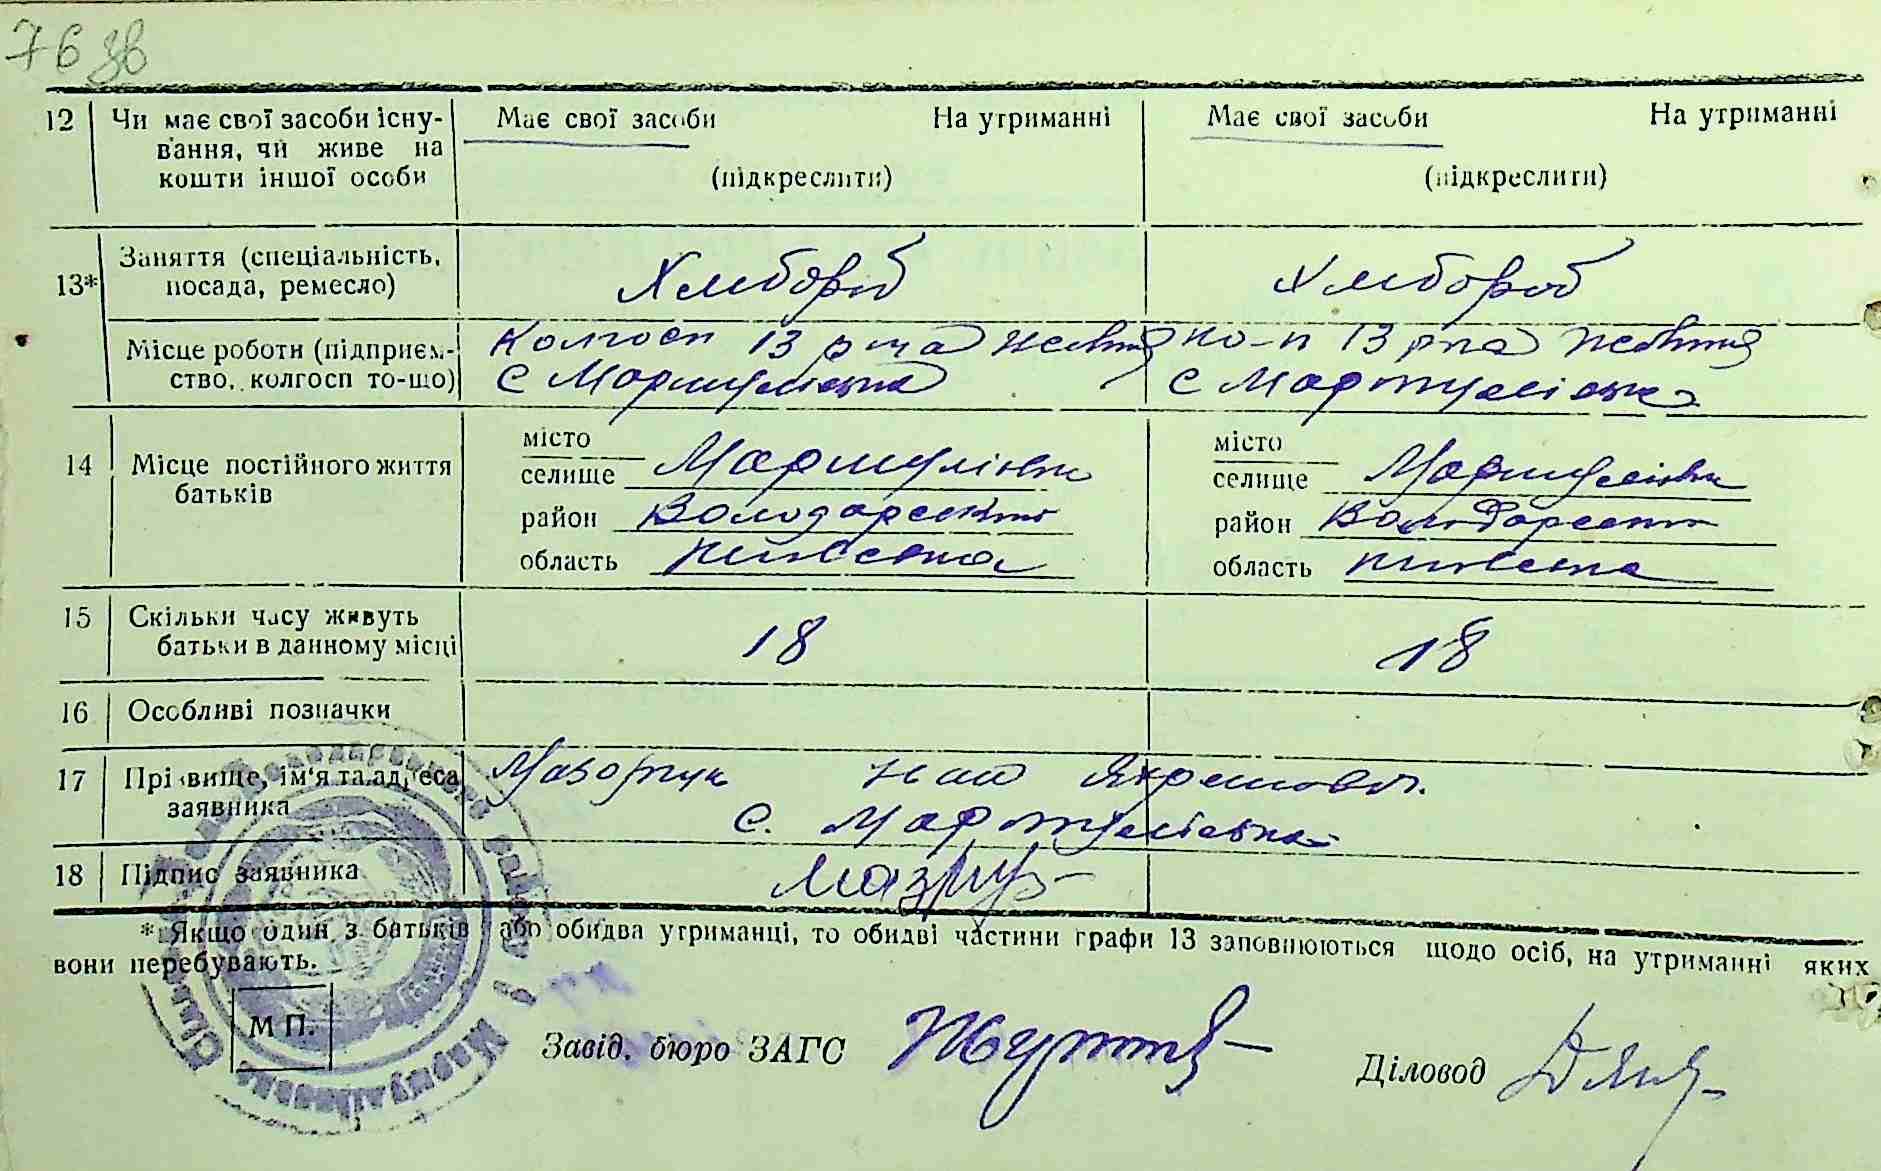 76 зв
12 Чи має свої засоби існу- Має свої засоби На утриманні Має свої засоби На утриманні
вання, чи живе на
кошти іншої особи (підкреслити) (підкреслити)
13* Заняття (спеціальність, посада, ремесло) Хлібороб Хлібороб
Місце роботи (підприєм- Колгосп 13 р жовтня 13 р жовтня
ство, колгосп то-що) с Мармуліївка с Мармуліївка
14 Місце постійного життя батьків
місто місто
селище Мармуліївка селище Мармуліївка
район Володарський район Володарський
область Київська область Київська
15 Скільки часу живуть
батьки в данному місці 18 18
16 Особливі позначки
17 Прізвище, ім'я та адреса
заявника
с. Мармуліївка
18 Підпис заявника
* Якщо один з батьків або обидва утриманці, то обидві частини графи 13 заповнюються щодо осіб, на утриманні яких
вони перебувають.
М П.
Завід. бюро ЗАГС
Діловод